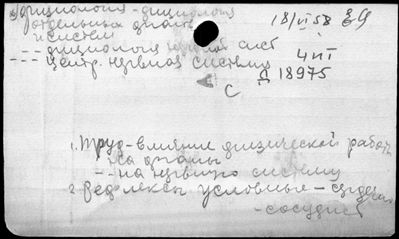 Физиология - физиология
отдельных органов
и систем
-- физиология нервной сист
--- центр. нервная система
18/VI 58
4 III
Д 18975
С
1. Труд - влияние физической работы
на органы
-- на нервную систему
2. Рефлексы условные - сердечно
- сосудист